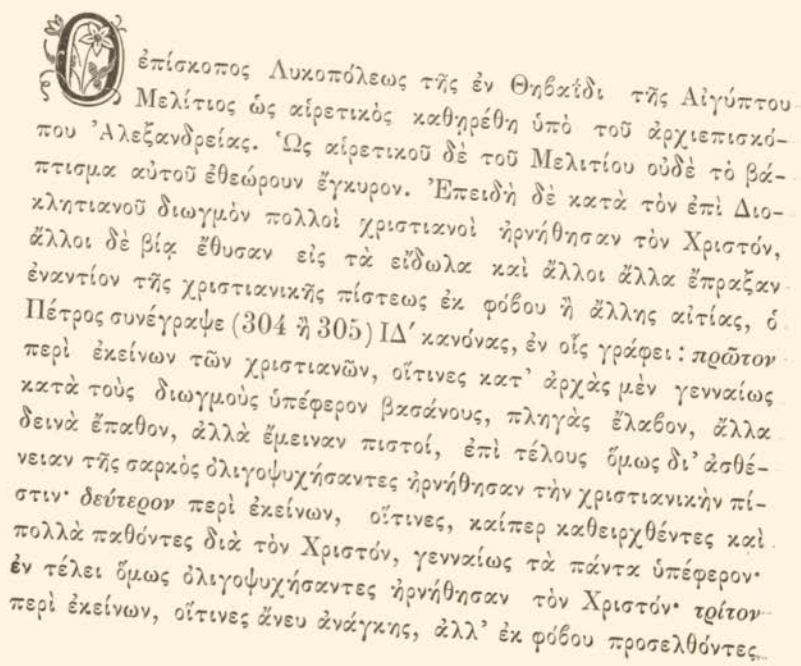 Ὁ ἐπίσκοπος Λυκοπόλεως τῆς ἐν Θηβαΐδι τῆς Αἰγύπτου
Μελίτιος ὡς αἱρετικὸς καθῃρέθη ὑπὸ τοῦ ἀρχιεπισκό-
που Ἀλεξανδρείας. Ὡς αἱρετικοῦ δὲ τοῦ Μελιτίου οὐδὲ τὸ βά-
πτισμα αὐτοῦ ἐθεώρουν ἔγκυρον. Ἐπειδὴ δὲ κατὰ τὸν ἐπὶ Διο-
κλητιανοῦ διωγμὸν πολλοὶ χριστιανοὶ ἠρνήθησαν τὸν Χριστόν,
ἄλλοι δὲ βίᾳ ἔθυσαν εἰς τὰ εἴδωλα καὶ ἄλλοι ἄλλα ἔπραξαν
ἐναντίον τῆς χριστιανικῆς πίστεως ἐκ φόβου ἢ ἄλλης αἰτίας, ὁ
Πέτρος συνέγραψε (304 ἢ 305) ΙΔ′ κανόνας, ἐν οἷς γράφει : πρῶτον
περὶ ἐκείνων τῶν χριστιανῶν, οἵτινες κατ' ἀρχὰς μὲν γενναίως
κατὰ τοὺς διωγμοὺς ὑπέφερον βασάνους, πληγὰς ἔλαβον, ἄλλα
δεινὰ ἔπαθον, ἀλλὰ ἔμειναν πιστοί, ἐπὶ τέλους ὅμως δι' ἀσθέ-
νειαν τῆς σαρκὸς ὀλιγοψυχήσαντες ἠρνήθησαν τὴν χριστιανικὴν πί-
στιν· δεύτερον περὶ ἐκείνων, οἵτινες, καίπερ καθειρχθέντες καὶ
πολλὰ παθόντες διὰ τὸν Χριστόν, γενναίως τὰ πάντα ὑπέφερον·
ἐν τέλει ὅμως ὀλιγοψυχήσαντες ἠρνήθησαν τὸν Χριστόν· τρίτον
περὶ ἐκείνων, οἵτινες ἄνευ ἀνάγκης, ἀλλ' ἐκ φόβου προσελθόντες